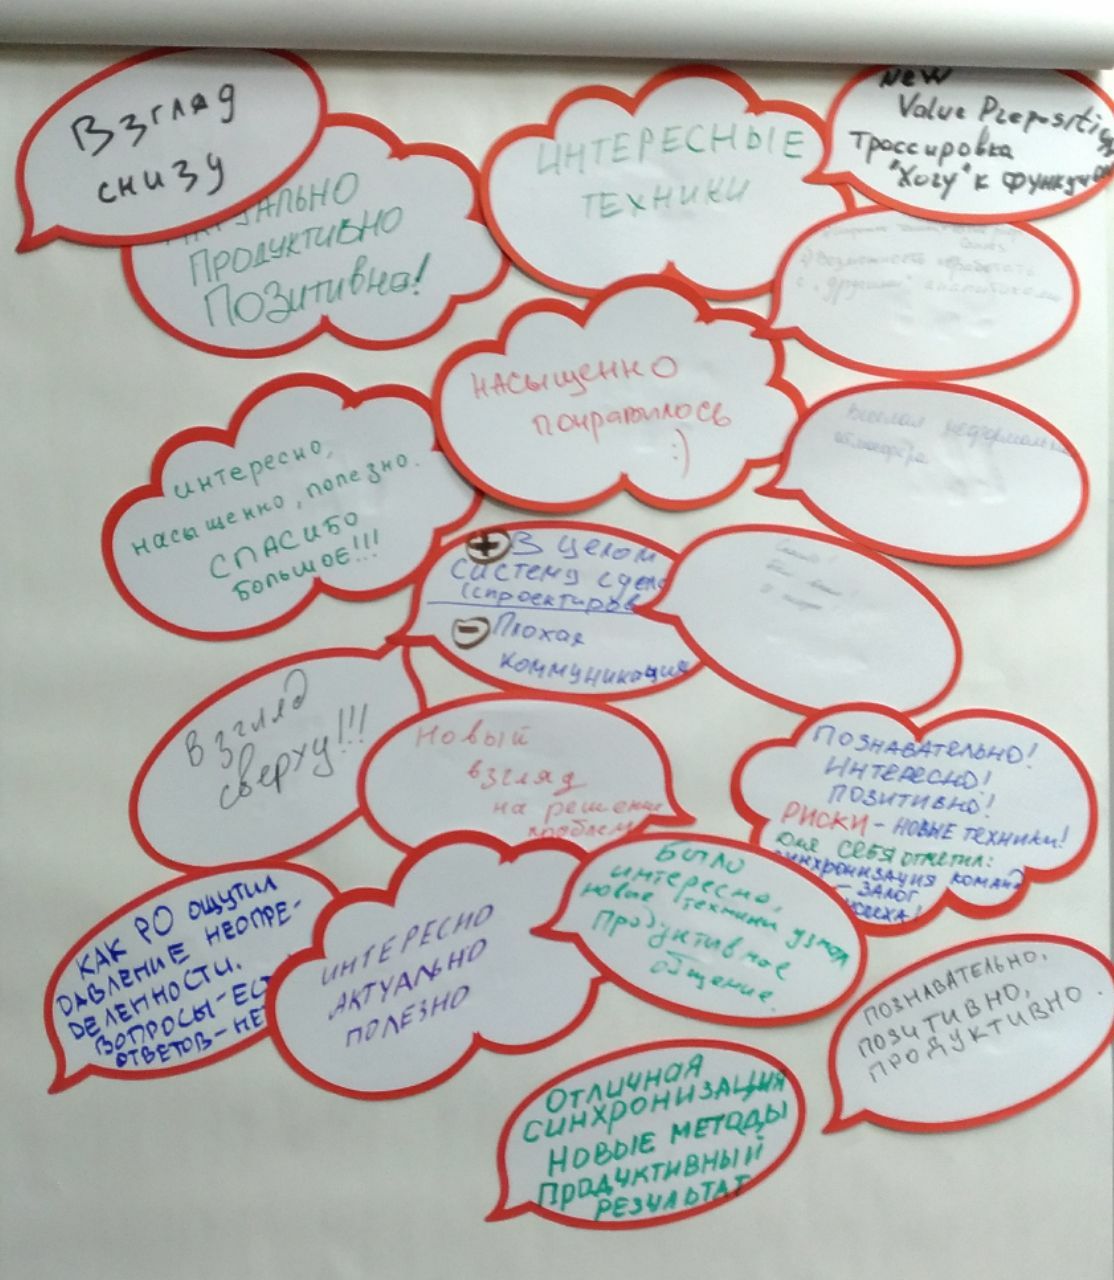 Взгляд
снизу
ПРОДУКТИВНО
ПОЗИТИВНО!
ИНТЕРЕСНЫЕ
ТЕХНИКИ
NEW
Value Prepositi
Трассировка
"Хочу" к функци
2) Возможность
с "другими" аналитиками
НАСЫЩЕННО
понравилось
:)
Веселая неформальн
атмосфера
интересно,
насыщенно, полезно.
СПАСИБО
БОЛЬШОЕ!!!
+ В целом
систему сдела
(спроектиров
- Плохая
коммуникация
Взгляд
сверху!!!
Новый
взгляд
на решение
проблем
ПОЗНАВАТЕЛЬНО!
ИНТЕРЕСНО!
ПОЗИТИВНО!
РИСКИ - НОВЫЕ ТЕХНИКИ!
ДЛЯ СЕБЯ отметил:
синхронизация команд
- ЗАЛОГ
КАК PO ОЩУТИЛ
ДАВЛЕНИЕ НЕОПРЕ-
ДЕЛЕННОСТИ.
ВОПРОСЫ - ЕСТ
ОТВЕТОВ - НЕТ
ИНТЕРЕСНО
АКТУАЛЬНО
ПОЛЕЗНО
Было
интересно,
новые техники узнал
Продуктивное
общение.
ПОЗНАВАТЕЛЬНО,
ПОЗИТИВНО,
ПРОДУКТИВНО.
ОТЛИЧНАЯ
СИНХРОНИЗАЦИЯ
НОВЫЕ МЕТОДЫ
ПРОДУКТИВНЫЙ
РЕЗУЛЬТАТ